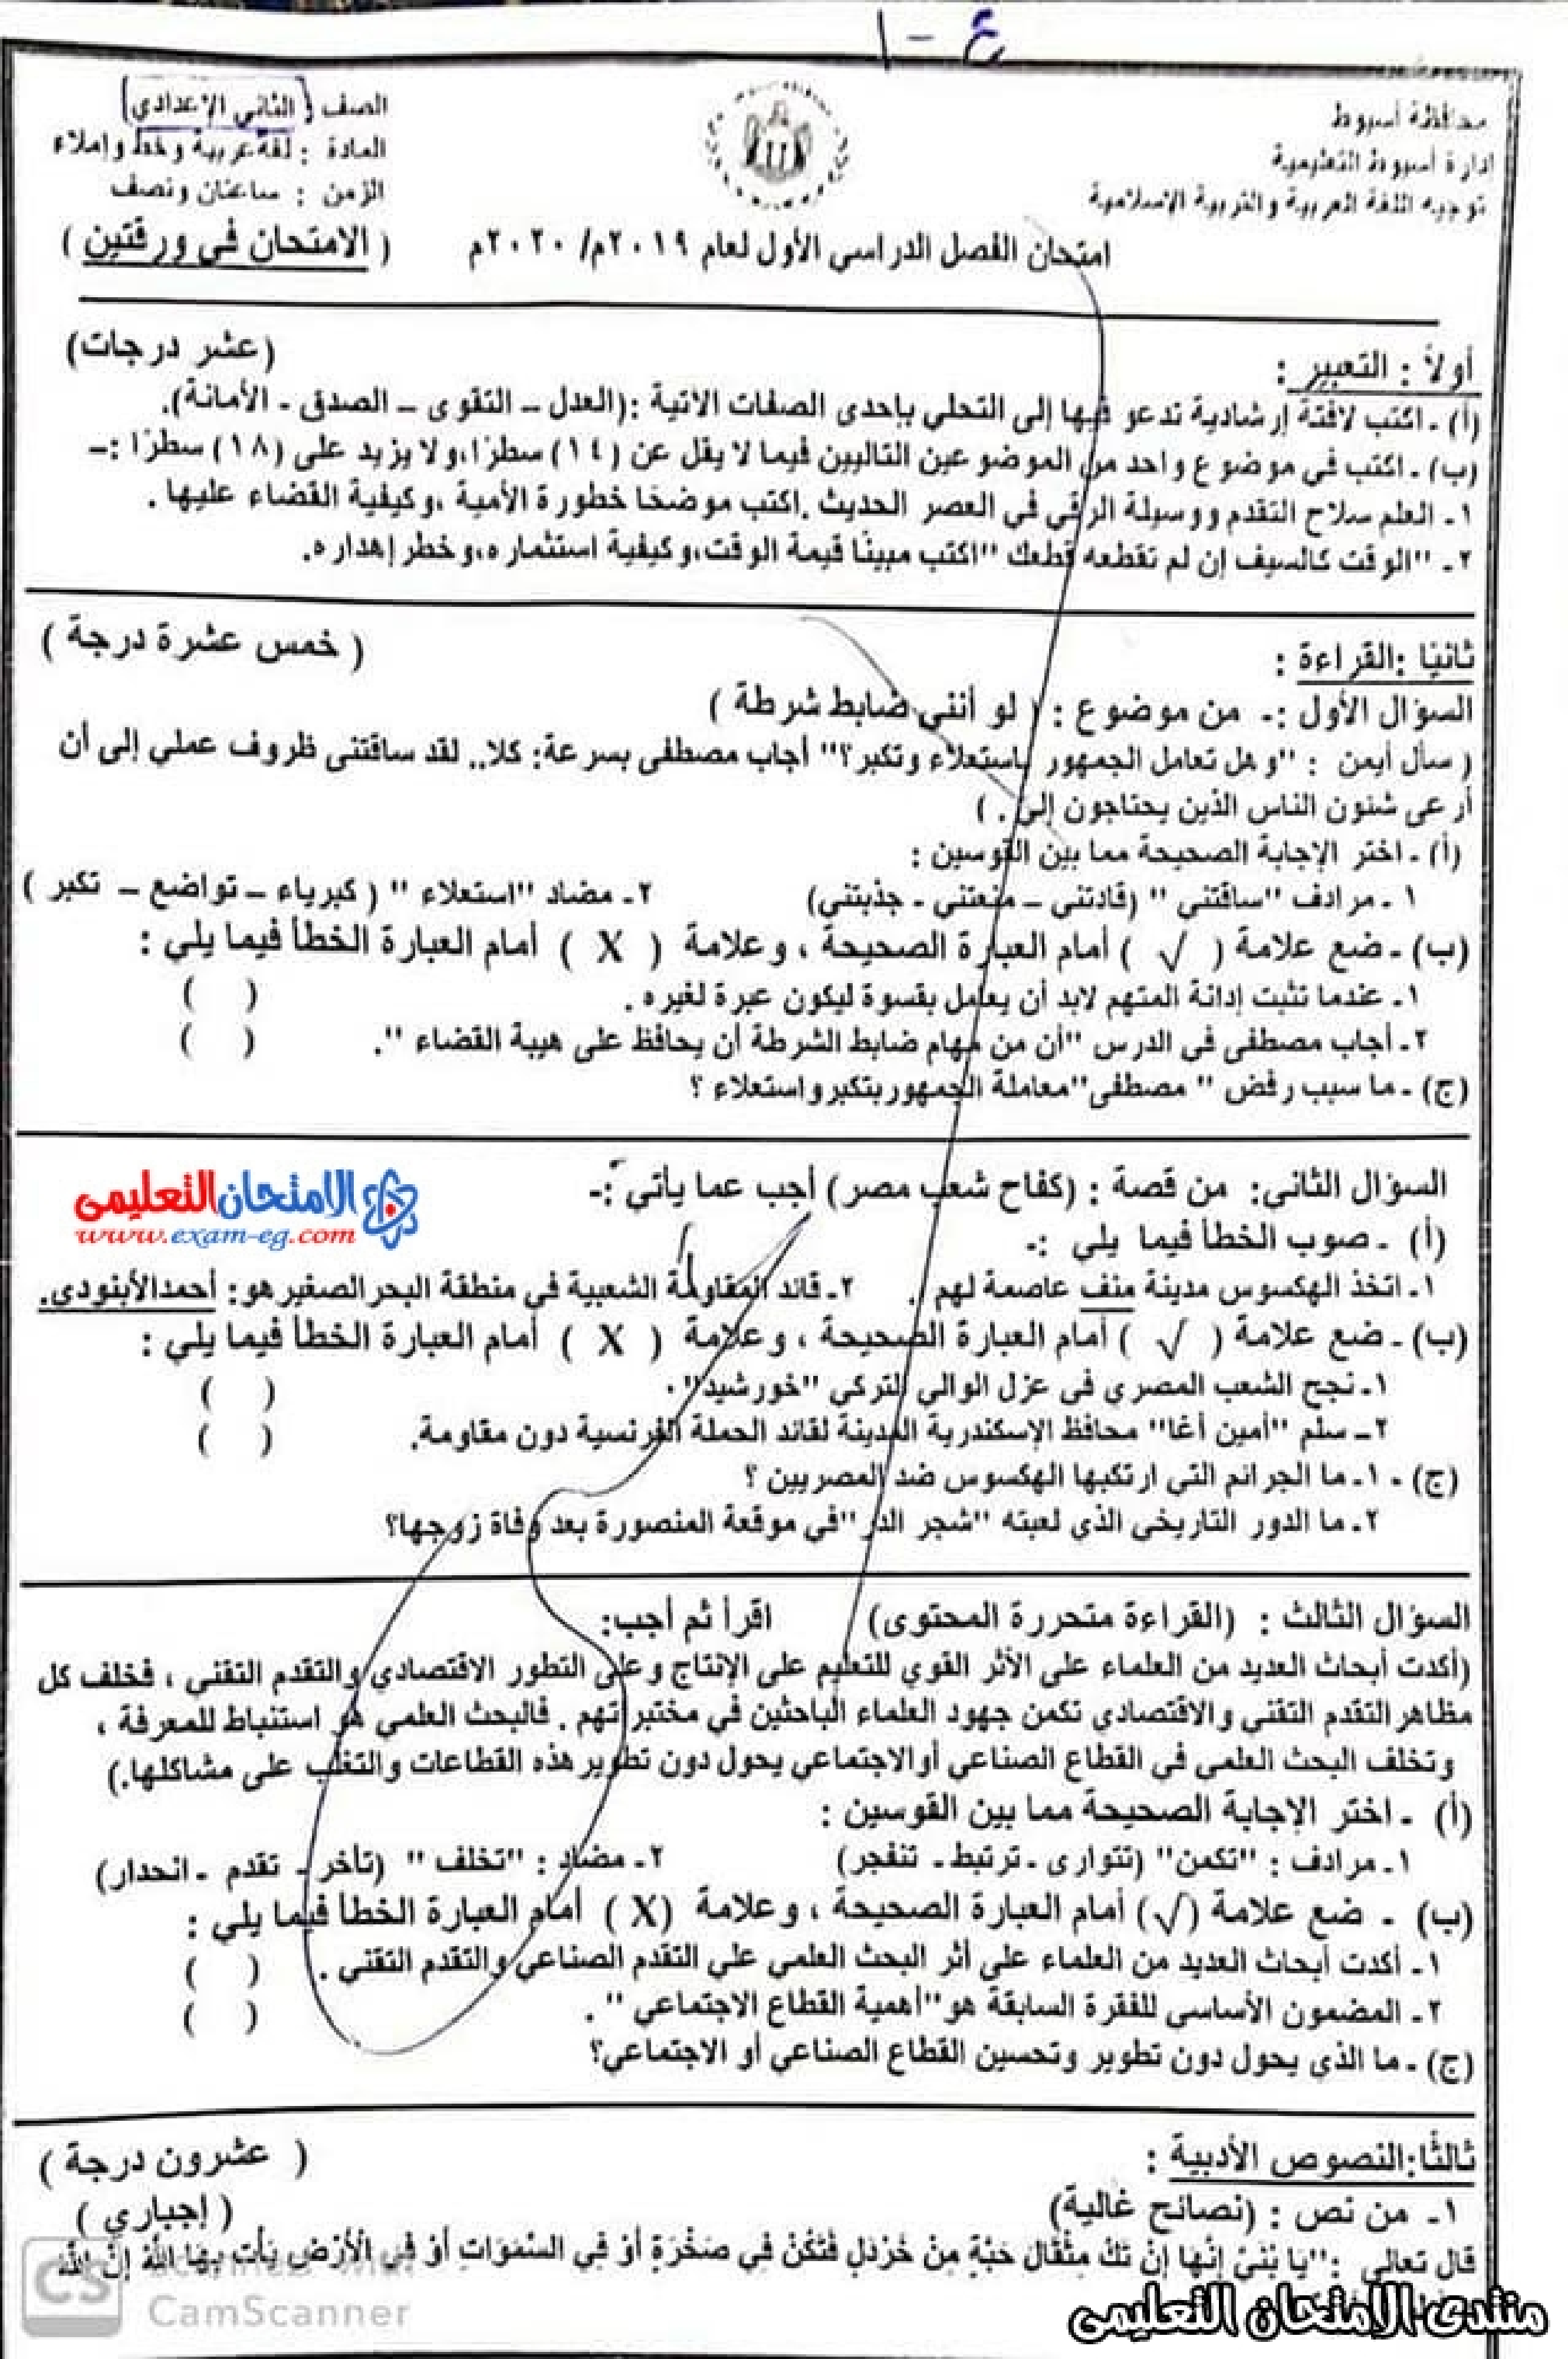 ع - ١
محافظة أسيوط
إدارة أسيوط التعليمية
توجيه اللغة العربية والتربية الإسلامية
الصف ( الثاني الإعدادي )
المادة : لغة عربية وخط وإملاء
الزمن : ساعتان ونصف
امتحان الفصل الدراسي الأول لعام ٢٠١٩م/ ٢٠٢٠م
( الامتحان في ورقتين )
أولاً : التعبير : (عشر درجات)
(أ) - اكتب لافتة إرشادية تدعو فيها إلى التحلي بإحدى الصفات الآتية :(العدل – التقوى – الصدق - الأمانة).
(ب)- اكتب في موضوع واحد من الموضوعين التاليين فيما لا يقل عن (١٤) سطرًا،ولا يزيد على (١٨) سطرًا :-
١- العلم سلاح التقدم ووسيلة الرقي في العصر الحديث .اكتب موضحًا خطورة الأمية ،وكيفية القضاء عليها .
٢- "الوقت كالسيف إن لم تقطعه قطعك "اكتب مبينًا قيمة الوقت،وكيفية استثماره،وخطر إهداره.
ثانيًا :القراءة : ( خمس عشرة درجة )
السؤال الأول :- من موضوع : ( لو أنني ضابط شرطة )
( سأل أيمن : "وهل تعامل الجمهور باستعلاء وتكبر؟" أجاب مصطفى بسرعة: كلا.. لقد ساقتنى ظروف عملي إلى أن
أرعى شئون الناس الذين يحتاجون إلىّ . )
(أ) - اختر الإجابة الصحيحة مما بين القوسين :
١ - مرادف "ساقتنى " (قادتنى – منعتنى - جذبتنى) ٢- مضاد "استعلاء " ( كبرياء – تواضع – تكبر )
(ب)- ضع علامة ( √ ) أمام العبارة الصحيحة ، وعلامة ( X ) أمام العبارة الخطأ فيما يلي :
١- عندما تثبت إدانة المتهم لابد أن يعامل بقسوة ليكون عبرة لغيره . ( )
٢- أجاب مصطفى في الدرس "أن من مهام ضابط الشرطة أن يحافظ على هيبة القضاء ". ( )
(ج) - ما سبب رفض " مصطفى"معاملة الجمهور بتكبر واستعلاء ؟
السؤال الثاني: من قصة : (كفاح شعب مصر) أجب عما يأتي :-
الامتحان التعليمى
www.exam-eg.com
(أ) - صوب الخطأ فيما يلي :-
١- اتخذ الهكسوس مدينة منف عاصمة لهم . ٢- قائد المقاومة الشعبية في منطقة البحر الصغير هو: أحمد الأبنودي.
(ب)- ضع علامة ( √ ) أمام العبارة الصحيحة ، وعلامة ( X ) أمام العبارة الخطأ فيما يلي :
١- نجح الشعب المصري في عزل الوالي التركي "خورشيد". ( )
٢- سلم "أمين أغا" محافظ الإسكندرية المدينة لقائد الحملة الفرنسية دون مقاومة. ( )
(ج) - ١- ما الجرائم التي ارتكبها الهكسوس ضد المصريين ؟
٢- ما الدور التاريخي الذي لعبته "شجر الدر "في موقعة المنصورة بعد وفاة زوجها؟
السؤال الثالث : (القراءة متحررة المحتوى) اقرأ ثم أجب:
(أكدت أبحاث العديد من العلماء على الأثر القوي للتعليم على الإنتاج وعلى التطور الاقتصادي والتقدم التقني ، فخلف كل
مظاهر التقدم التقني والاقتصادي تكمن جهود العلماء الباحثين في مختبراتهم . فالبحث العلمي هو استنباط للمعرفة ،
وتخلف البحث العلمي في القطاع الصناعي أو الاجتماعي يحول دون تطوير هذه القطاعات والتغلب على مشاكلها.)
(أ) - اختر الإجابة الصحيحة مما بين القوسين :
١- مرادف : "تكمن" (تتوارى - ترتبط - تنفجر) ٢- مضاد : "تخلف " (تأخر - تقدم - انحدار)
(ب) - ضع علامة (√) أمام العبارة الصحيحة ، وعلامة (X ) أمام العبارة الخطأ فيما يلي :
١- أكدت أبحاث العديد من العلماء على أثر البحث العلمي على التقدم الصناعي والتقدم التقني . ( )
٢- المضمون الأساسي للفقرة السابقة هو"أهمية القطاع الاجتماعي ". ( )
(ج) - ما الذي يحول دون تطوير وتحسين القطاع الصناعي أو الاجتماعي؟
ثالثًا:النصوص الأدبية : ( عشرون درجة )
١- من نص : (نصائح غالية) ( إجباري )
قال تعالى :"يَا بُنَيَّ إِنَّهَا إِنْ تَكُ مِثْقَالَ حَبَّةٍ مِنْ خَرْدَلٍ فَتَكُنْ فِي صَخْرَةٍ أَوْ فِي السَّمَوَاتِ أَوْ فِي الْأَرْضِ يَأْتِ بِهَا اللَّهُ إِنَّ اللَّهَ
CS Scanned with
CamScanner
منتدى الامتحان التعليمى